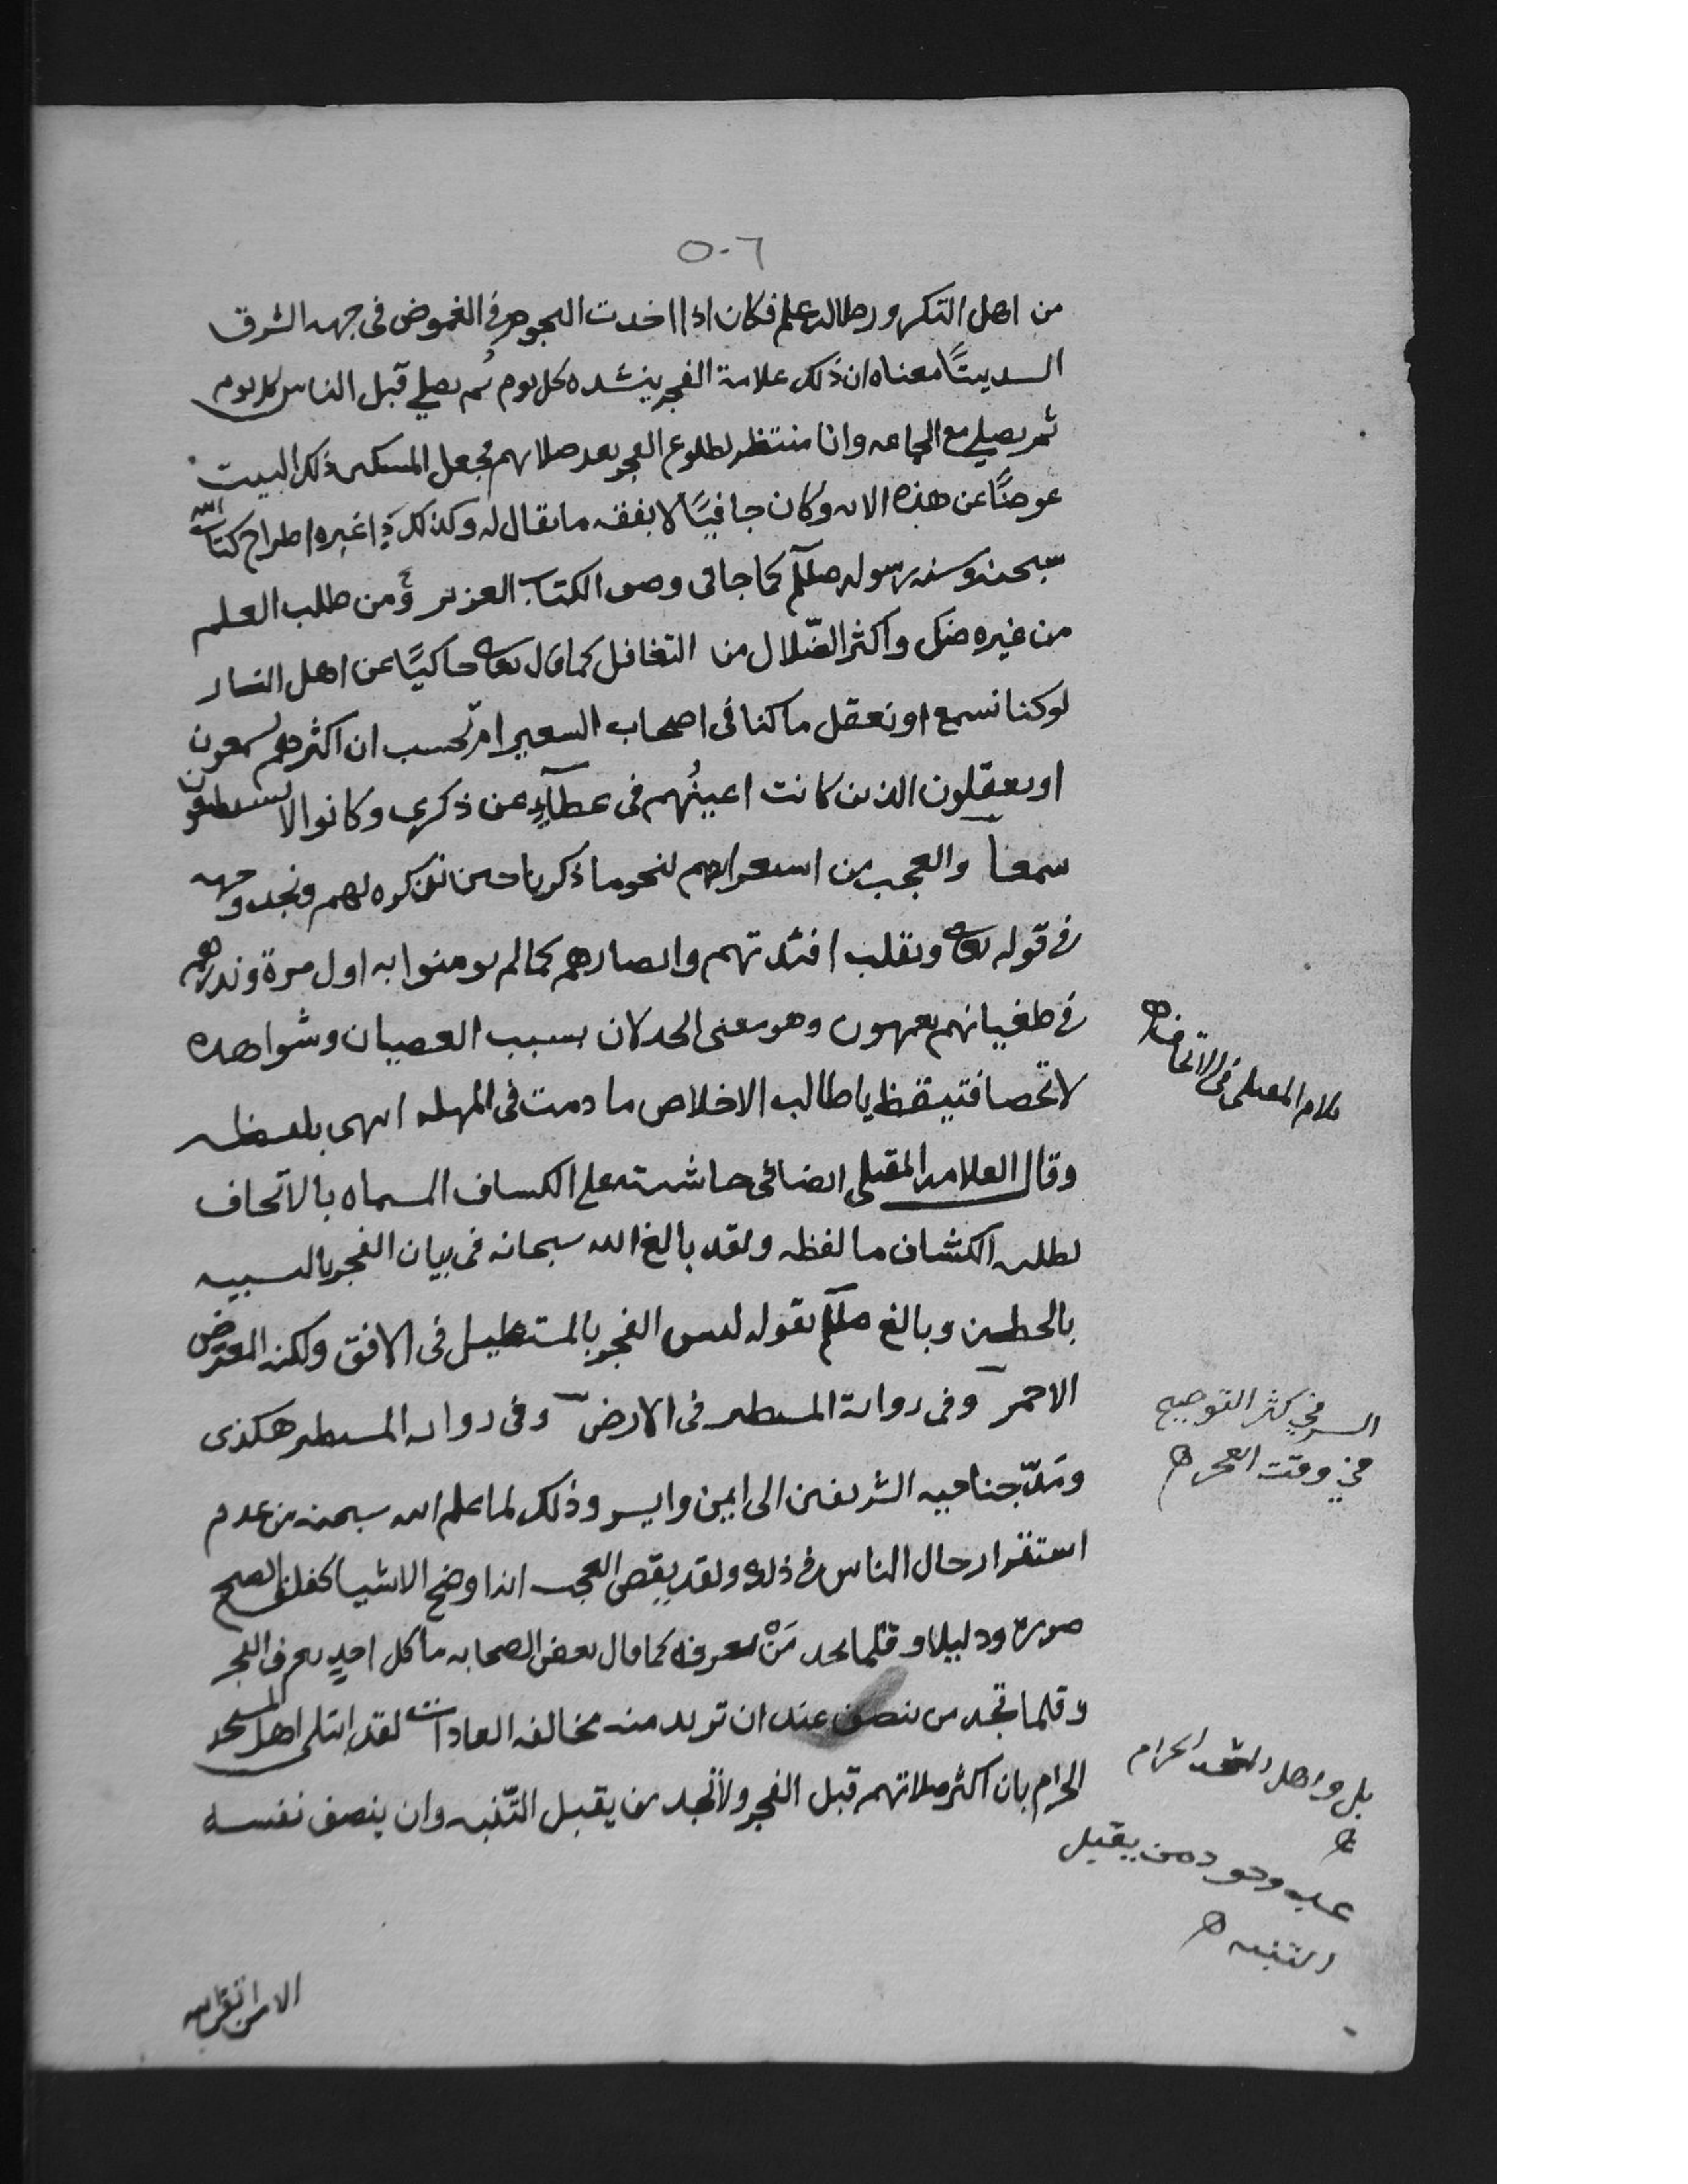 ٥٠٦
من اهل التكرور طالب علم فكان اذا اخذت النجوم في الغموض في جهه الشرق
انشد بيتًا معناه ان ذلك علامة الفجر ينشده كل يوم ثم يصلي قبل الناس كل يوم
ثم يصلي مع الجماعه وانا منتظر لطلوع الفجر بعد صلاتهم فجعل المسكين ذلك البيت
عوضًا عن هذه الايه وكان جافيًا لا يفقه ما يقال له وكذلك غيره اطراح كتاب الله
سبحنه وسنه رسوله صللم كما جا في وصف الكتاب العزيز ومن طلب العلم
من غيره ضل واكثر الضّلال من التغافل كما قال تعالى حاكيًا عن اهل النار
لو كنا نسمع او نعقل ما كنا في اصحاب السعير ام تحسب ان اكثرهم يسمعون
او يعقلون الذين كانت اعينُهم في غطآءٍ عن ذكري وكانوا لا يستطيعون
سمعا والعجب من استغرابهم لنحو ما ذكرنا حين نذكره لهم ونجد وجهه
في قوله تعالى ونقلب افئدتهم وابصارهم كما لم يومنوا به اول مرة ونذرهم
في طغيانهم يعمهون وهو معنى الخذلان بسبب العصيان وشواهده
لا تحصا فتيقظ يا طالب الاخلاص ما دمت في المهله انتهى بلفظه
وقال العلامه المقبلي ايضا في حاشيته على الكشاف المسماه بالاتحاف
لطلبه الكشاف ما لفظه ولقد بالغ الله سبحانه في بيان الفجر بالتشبيه
بالخيطين وبالغ صللم بقوله ليس الفجر بالمستطيل في الافق ولكنه المعترض
الاحمر وفي رواية المستطير في الارض وفي روايه المستطير هكذى
ومَدّ جناحيه الشريفين الى ايمن وايسر وذلك لما علم الله سبحنه من عدم
استقرار حال الناس في ذلك ولقد يقضى العجب اذا وضح الاشيا كفلق الصبح
صورة ودليلا وقلما تجد مَنْ يعرفه كما قال بعض الصحابه ما كل احدٍ يعرف الفجر
وقلما تجد من ينصف عند ان تريد منه مخالفه العادات لقد ابتلى اهل المسجد
الحرام بان اكثر صلاتهم قبل الفجر ولا تجد من يقبل التّنبه وان ينصف نفسه
كلام المقبلي في الاتحاف
السر في كثر التوضيح
في وقت الفجر
بل واهل المسجد الحرام
عدم وجود من يقبل
التنبه